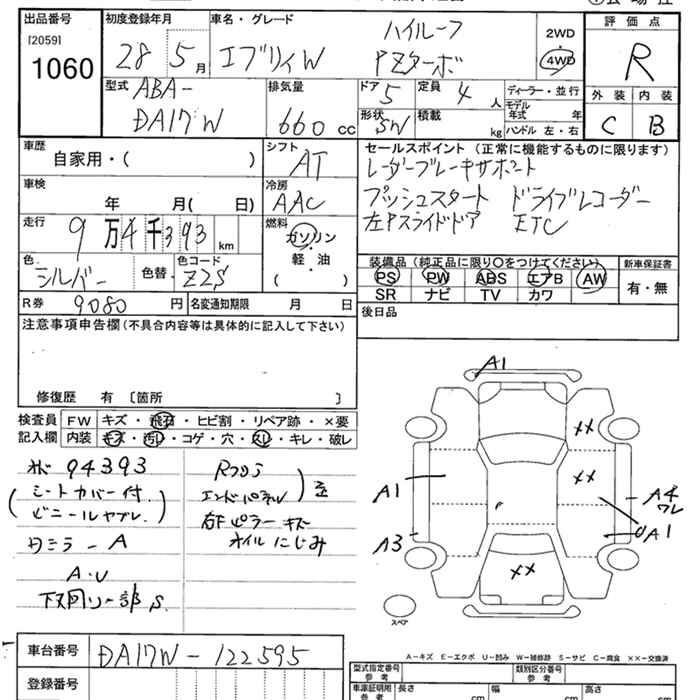 出品番号 [2059] 1060
初度登録年月 28 5月
車名・グレード エブリィW ハイルーフ PZターボ
2WD 4WD
評価点 R
外装 C 内装 B
型式 ABA- DA17W
排気量 660 cc
ドア 5 定員 4人
形状 SW 積載 kg
ディーラー・並行
モデル年式 年
ハンドル 左・右
車歴 自家用・( )
シフト AT
セールスポイント (正常に機能するものに限ります)
レーダーブレーキサポート
プッシュスタート ドライブレコーダー
左Pスライドドア ETC
車検 年 月( 日)
冷房 AAC
走行 9万4千393 km
燃料 ガソリン・軽油 ( )
色 シルバー 色替 色コード Z2S
装備品 (純正品に限り○をつけてください) 新車保証書
PS PW ABS エアB AW 有・無
SR ナビ TV カワ
R券 9080円 名変通知期限 月 日
後日品
注意事項申告欄 (不具合内容等は具体的に記入して下さい)
修復歴 有 〔箇所 〕
検査員 FW キズ・飛石・ヒビ割・リペア跡・×要
記入欄 内装 キズ・汚れ・コゲ・穴・スレ・キレ・破レ
94393
(シートカバー付.
ビニールヤブレ.)
ミラー A
A.U
下回リ一部S.
エンドパネル
右Fピラーキズ
オイルにじみ
A1
××
A1 ×× A4 ワレ
A3 UA1
××
スペア
A-キズ E-エクボ U-凹み W-補修跡 S-サビ C-腐食 ××-交換済
車台番号 DA17W-122595
登録番号
型式指定番号 参考 類別区分番号 参考
車庫証明用 参考 長さ cm 幅 cm 高さ cm